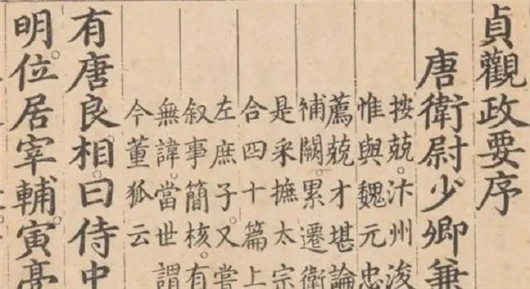 貞觀政要序
唐衛尉少卿兼
按兢。汴州浚
惟與魏元忠
薦兢才堪論
補闕。累遷衛
是采撫太宗
合四十篇上
左庶子。又嘗
叙事簡核。有
無諱。當世謂
今董狐云
有唐良相。曰侍中
明。位居宰輔。寅亮